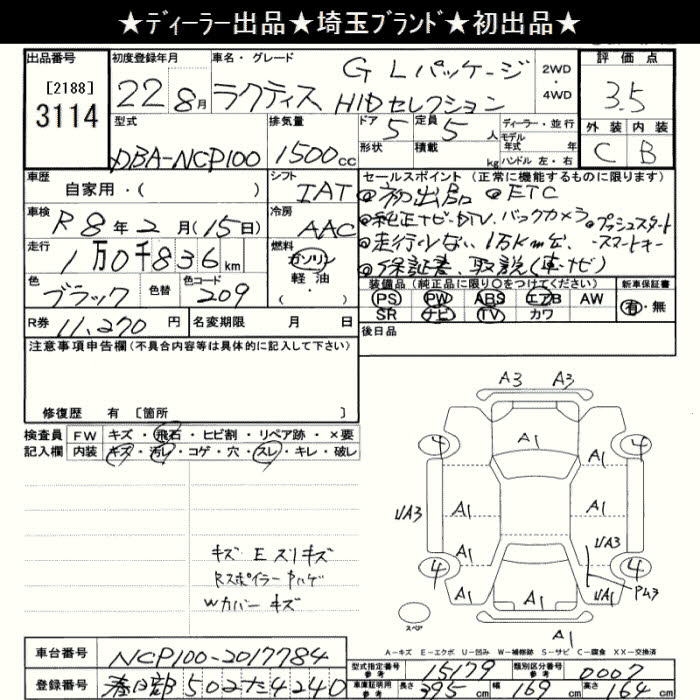 ★ディーラー出品★埼玉ブランド★初出品★
出品番号 初度登録年月 車名・グレード 2WD・4WD 評価点
[2188]
3114
22 年 8月 ラクティス G Lパッケージ HIDセレクション 3.5
型式 排気量 ドア 5 定員 5人 ディーラー・並行 外装 内装
DBA-NCP100 1500cc 形状 積載 kg モデル年式 年式 ハンドル 左・右 C B
車歴 自家用・( ) シフト IAT
セールスポイント (正常に機能するものに限ります)
◎初出品 ◎ETC
車検 R8年2月(15日) 冷房 AAC
◎純正ナビ・DTV、バックカメラ ◎プッシュスタート
走行 1万0千836km 燃料 ガソリン 軽油 ・( )
◎走行少ない、1万km台、・スマートキー
◎保証書、取説(車・ナビ)
色 ブラック 色替 色コード 209
装備品 (純正品に限り○をつけてください) 新車保証書
PS PW ABS エアB AW 有・無
SR ナビ TV カワ
R券 11,270円 名変期限 月 日
後日品
注意事項申告欄(不具合内容等は具体的に記入して下さい)
修復歴 有 [箇所 ]
検査員 FW キズ・飛石・ヒビ割・リペア跡・×要
記入欄 内装 キズ・汚レ・コゲ・穴・スレ・キレ・破レ
A3 A3
4 A1 4
A1 A1
UA3 A1 A1
A1 UA3
4 A1 4
A1 UA1 PU3
スペア
A1
キズ E スリキズ
Rスポイラー ハゲ
Wカバー キズ
A-キズ E-エクボ U-凹み W-補修跡 S-サビ C-腐食 XX-交換済
車台番号 NCP100-2017784
型式指定番号 参考 15179 類別区分番号 参考 0007
登録番号 春日部 502 た 4240
車庫証明用 参考 長さ 395cm 幅 169cm 高さ 164cm